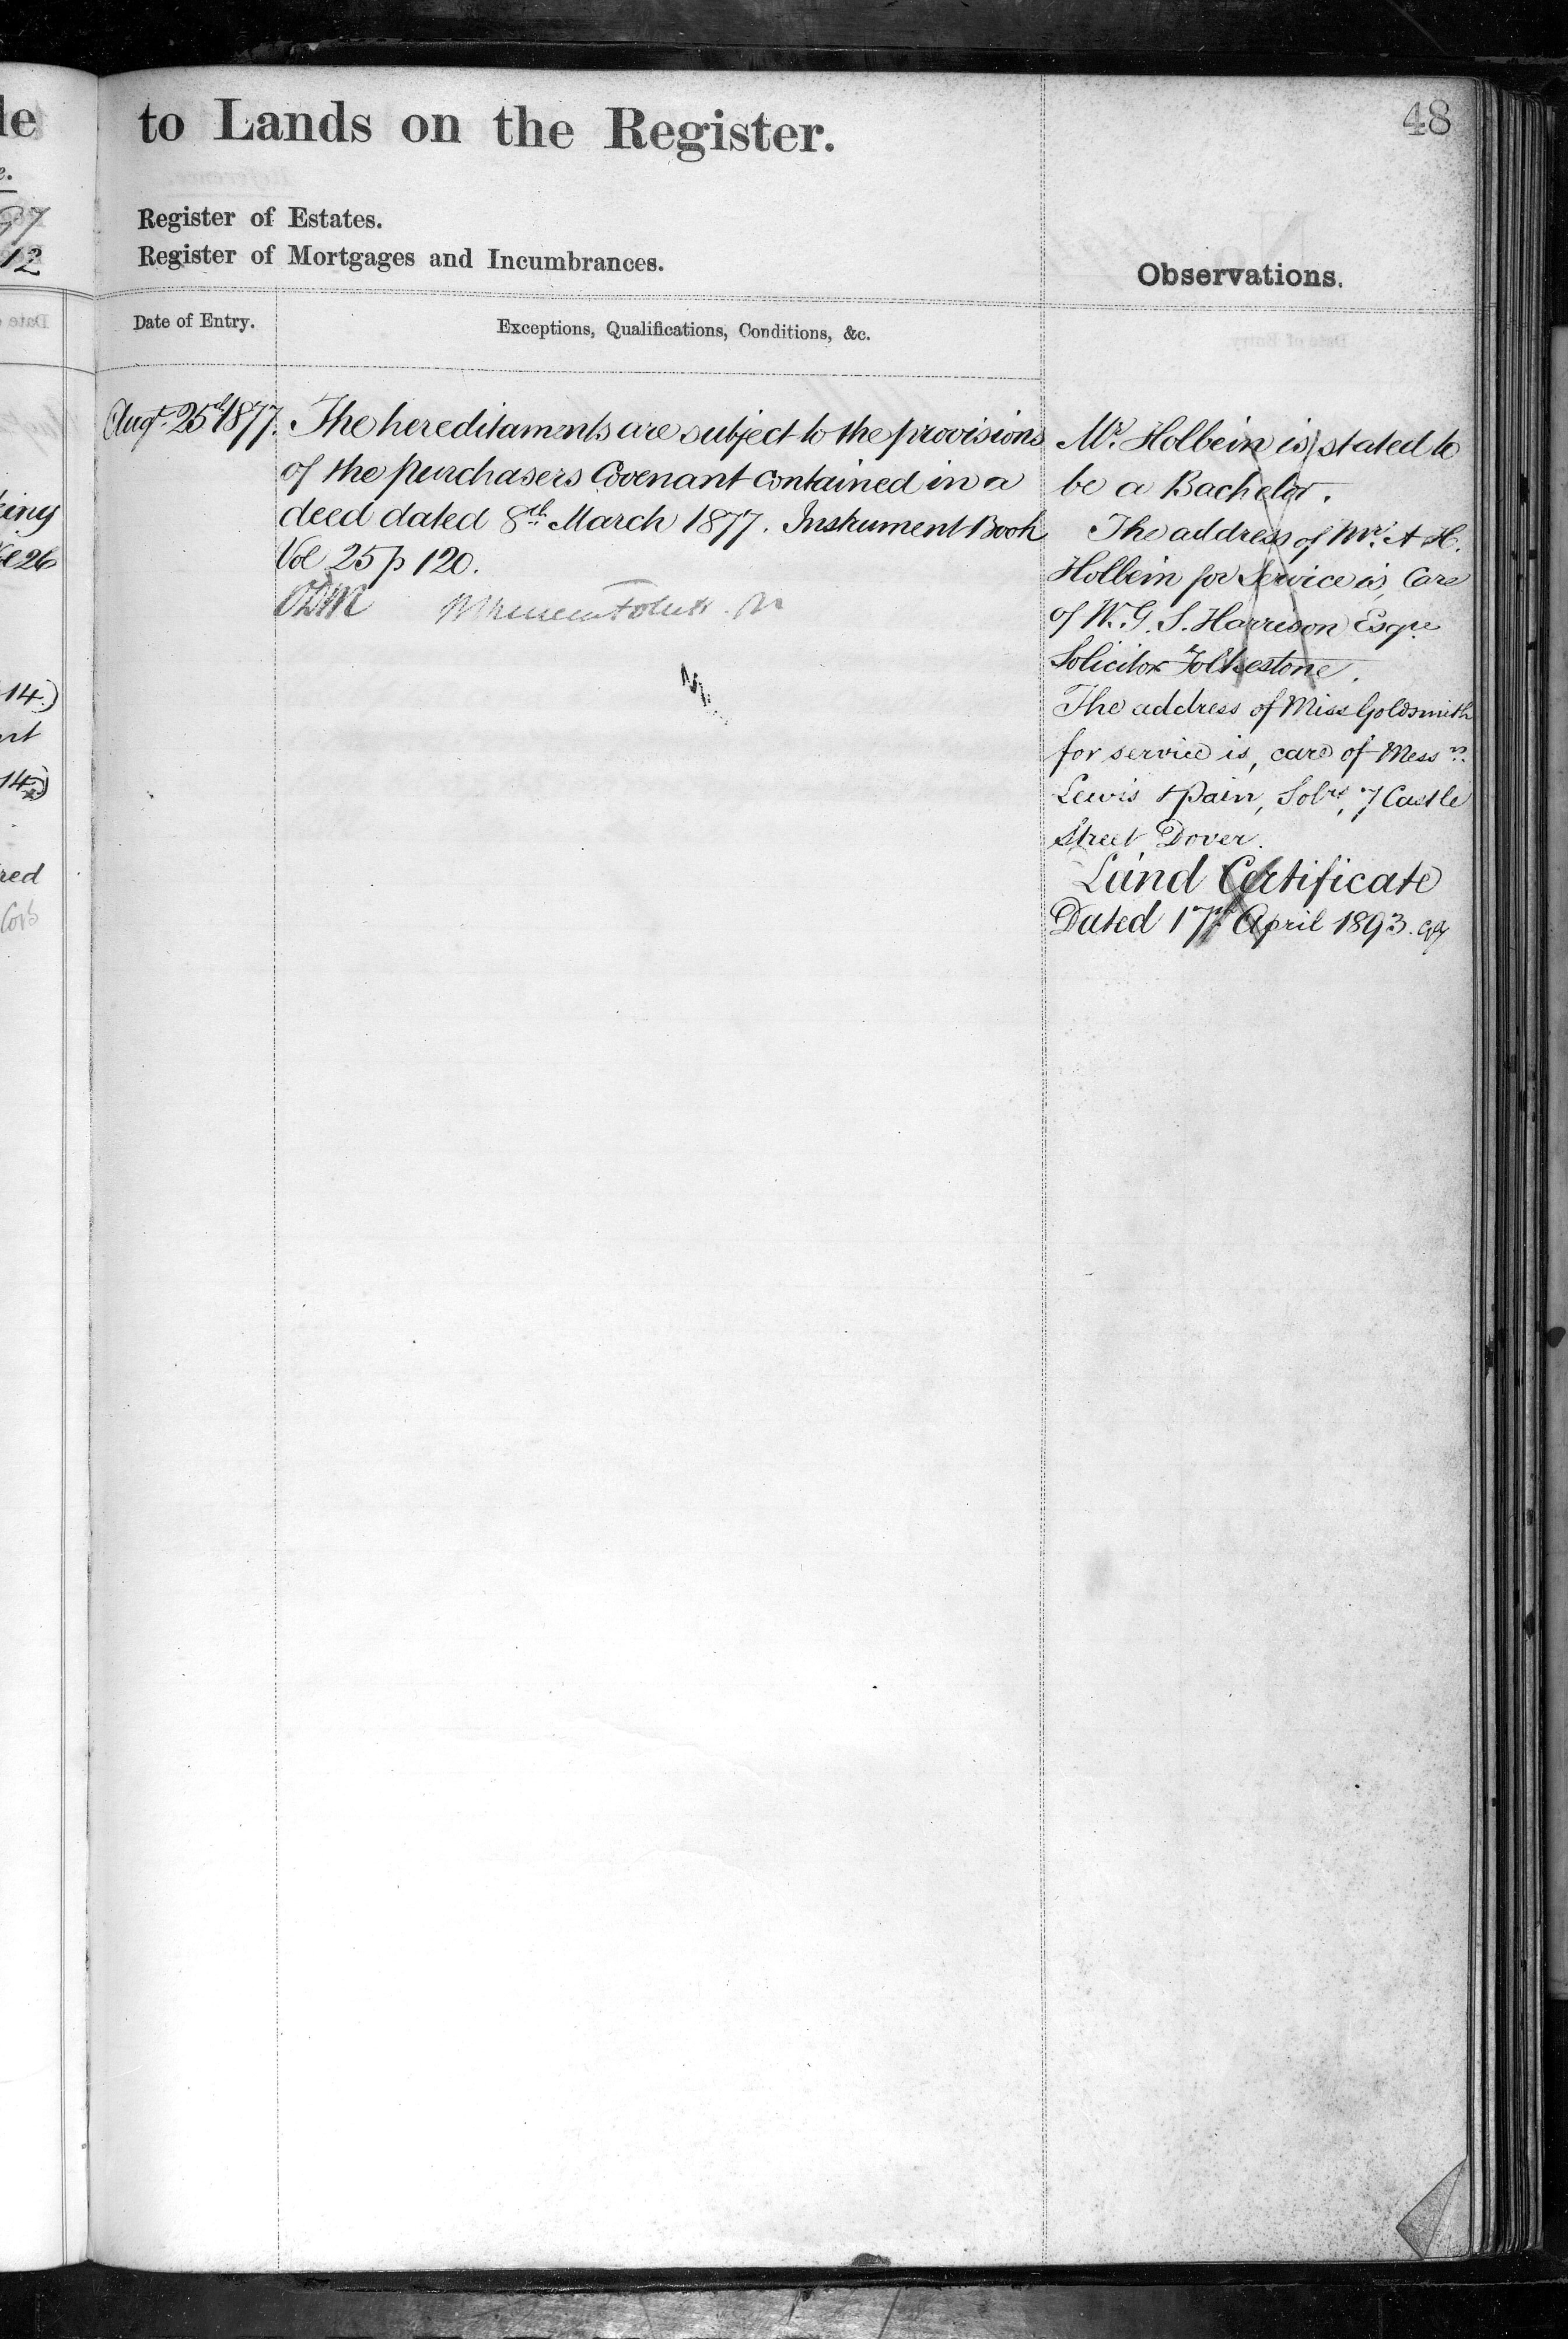 le
to Lands on the Register.
48
Register of Estates.
Register of Mortgages and Incumbrances.
12
Observations.
Date of Entry.
Exceptions, Qualifications, Conditions, &c.
Augt. 25th 1877.
The hereditaments are subject to the provisions
of the purchasers Covenant contained in a
deed dated 8th March 1877. Instrument Book
Vol 25 p 120.
Mr. Holbein is stated to
be a Bachelor.
The address of Mr. A H.
Holbein for Service is, Care
of W. G. S. Harrison Esqre
Solicitor Folkestone.
The address of Miss Goldsmith
for service is, care of Messrs.
Lewis & Pain, Solrs, 7 Castle
Street Dover.
Land Certificate
Dated 17th April 1893.
14)
14)
red